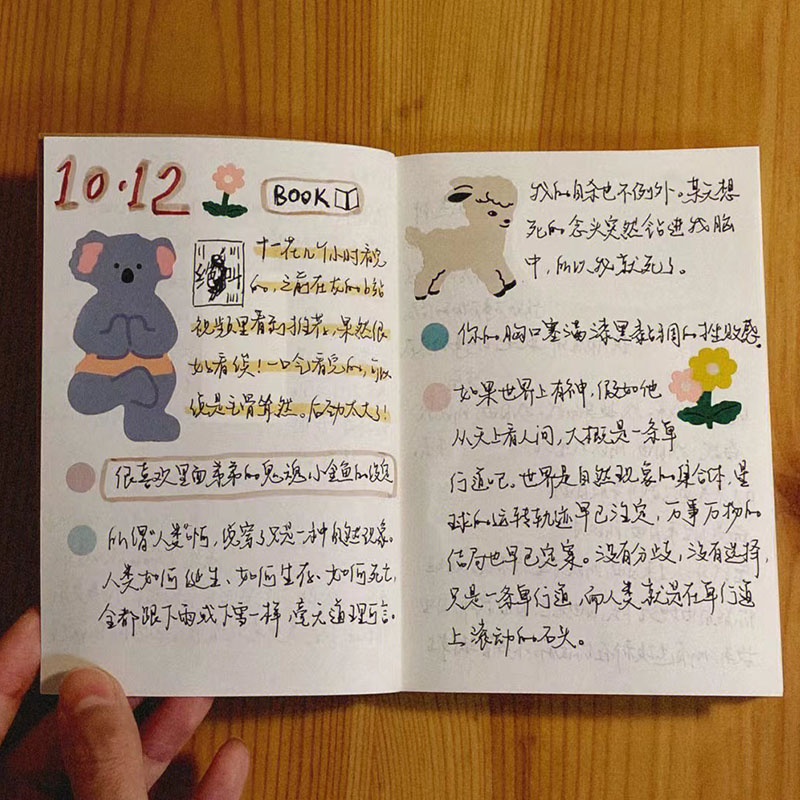 10.12
BOOK
绝叫
十一花几个小时看完
的，之前在友的b站
视频里看到推荐，果然很
好看诶！一口气看完的，可以
说是毛骨悚然。后劲太大了！
很喜欢里面弟弟的鬼魂小金鱼的设定
所谓“人类”啊，说穿了只是一种自然现象。
人类如何诞生、如何生存、如何死亡，
全都跟下雨或下雪一样，毫无道理可言。
我的自杀也不例外。某天想
死的念头突然钻进我脑
中，所以我就死了。
你的胸口塞满漆黑黏稠的挫败感。
如果世界上有神，假如他
从天上看人间，大概是一条单
行道吧。世界是自然现象的集合体，星
球的运转轨迹早已注定，万事万物的
结局也早已定案。没有分歧，没有选择，
只是一条单行道，而人类就是在单行道
上滚动的石头。